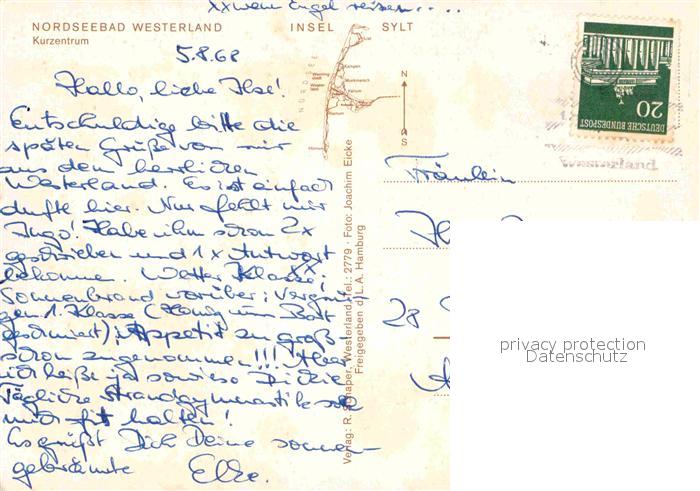 xx wenn Engel reisen....
NORDSEEBAD WESTERLAND
Kurzentrum
INSEL SYLT
5.8.68
Hallo, liebe Ilse!
Entschuldige bitte die
späten Grüße von mir
aus dem herrlichen
Westerland. Es ist einfach
dufte hier. Nur fehlt mir
Ingo! Habe ihm schon 2x
geschrieben und 1x Antwort
bekommen. Wetter Klasse; xx
Sonnenbrand vorüber; Vergnü-
gen 1. Klasse (Honig um Bart
geschmiert); Appetit zu groß
schon zugenommen!!! Aber
ich heiße ja sowieso Dickie
Tägliche Strandgymnastik soll
mich fit halten!
Es grüßt Dich Deine sonnen-
gebräunte Elke.
NORDSEE
List
Kampen
Westerland
Keitum
Hörnum
N
S
Verlag: R. Schaper, Westerland, Tel.: 2779 · Foto: Joachim Eicke
Freigegeben d. L.A. Hamburg
DEUTSCHE BUNDESPOST
20
Westerland
Fräulein
28
privacy protection
Datenschutz